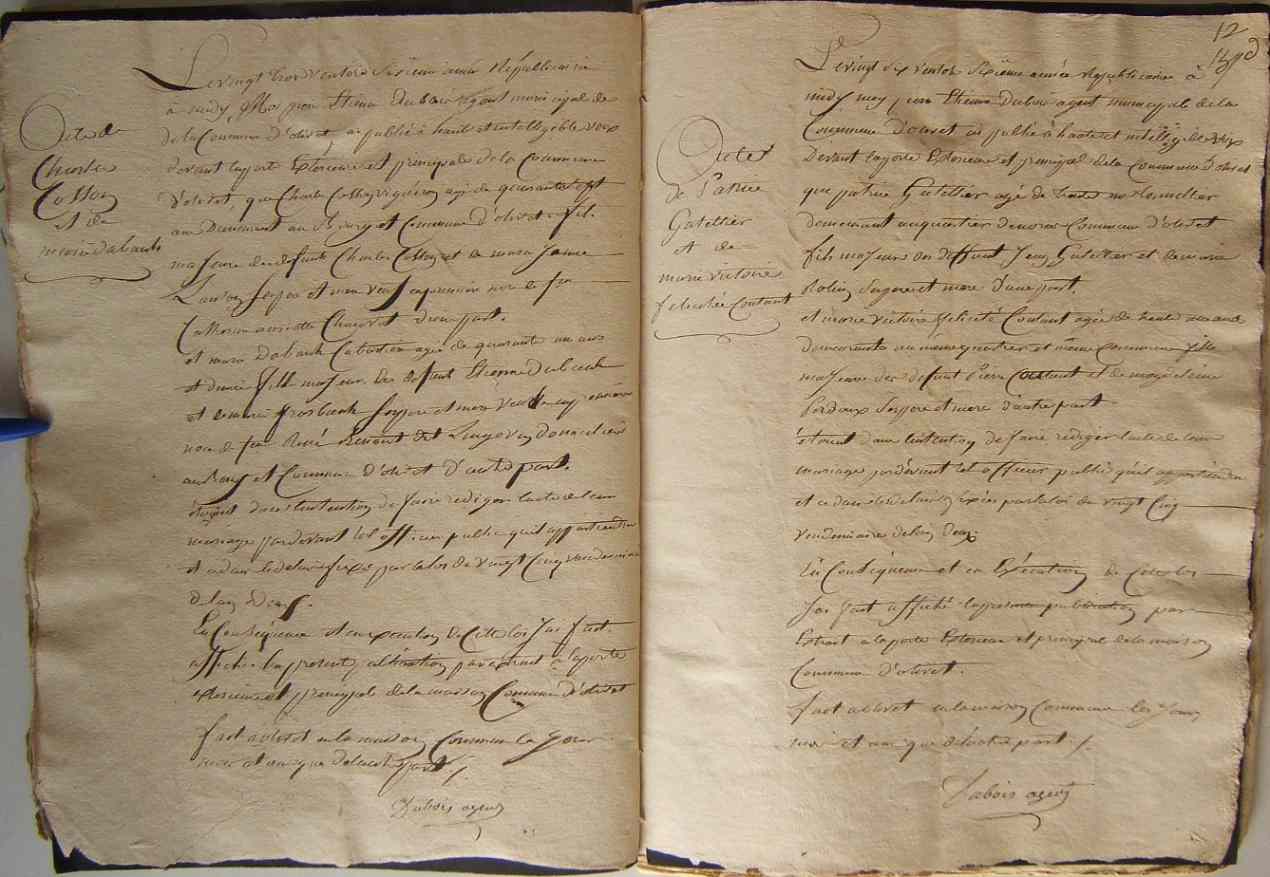 Acte de
Charles
Cosson
et de
marie dabault
Le vingt trois ventose Sixieme année Republicaine
à midy, Moy jean Etienne Dubois agent municipal de
de la Commune d'olivet, ai publié à haute et intelligible voix
devant la porte Exterieure et principale de la Commune
d'olivet, que Charles Cosson vigneron agé de quarante sept
ans Demeurant au Bourg et Commune d'olivet fils
majeure de defunts Charles Cosson et de marie Jeanne
ses pere et mere veuf en premiere noce de feu
Catherine d'une part.
et marie Dabault agée de quarante un ans
et demie fille majeure des defunts Etienne dabault
et de marie ses pere et mere veuve en premiere
noce de feu René
au Bourg et Commune d'olivet D'autre part.
étoient dans l'intention de faire rediger l'acte de leur
mariage pardevant tel officier public qu'il appartiendra
et ce dans le delai fixé par la loi du vingt Cinq vendemiaire
de l'an Deux.
En Conséquence et en execution de Cette loi J'ai fait
afficher la presente publication par extrait a la porte
exterieure et principale de la maison Commune d'olivet
fait a olivet en la maison Commune les Jour
mois et an que de l'autre part ./.
Dubois agent
12
Acte
de Patrice
Gatellier
et de
marie victoire
felicitée Coutant
Le vingt six ventose Sixieme année Republicaine à
midy moy jean Etienne Dubois agent municipale de la
Commune d'olivet ai publié à haute et intelligible voix
Devant la porte Exterieure et principal de la Commune d'olivet
que patrice Gatellier agé de trente un tonnellier
demeurant au quartier de Commune d'olivet
fils majeure de deffunt Jean Gatellier et de marie
Robin ses pere et mere d'une part.
et marie victoire felicité Coutant agée de trente ans
demeurante au même quartier et même Commune fille
majeure des defunt Pierre Coutant et de magdeleine
Bordoux ses pere et mere d'autre part
étoient dans l'intention de faire rediger l'acte de leur
mariage pardevant tel officier public qu'il appartiendra
et ce dans le delai fixée par la loi du vingt Cinq
vendemiaire de l'an Deux
En Conséquence et en Execution de Cette loi
J'ai fait affiché la presente publication par
Extrait a la porte Exterieure et principal de la maison
Commune d'olivet.
fait a olivet en la maison Commune les Jour
mois et an que de l'autre part ./.
Dubois agent